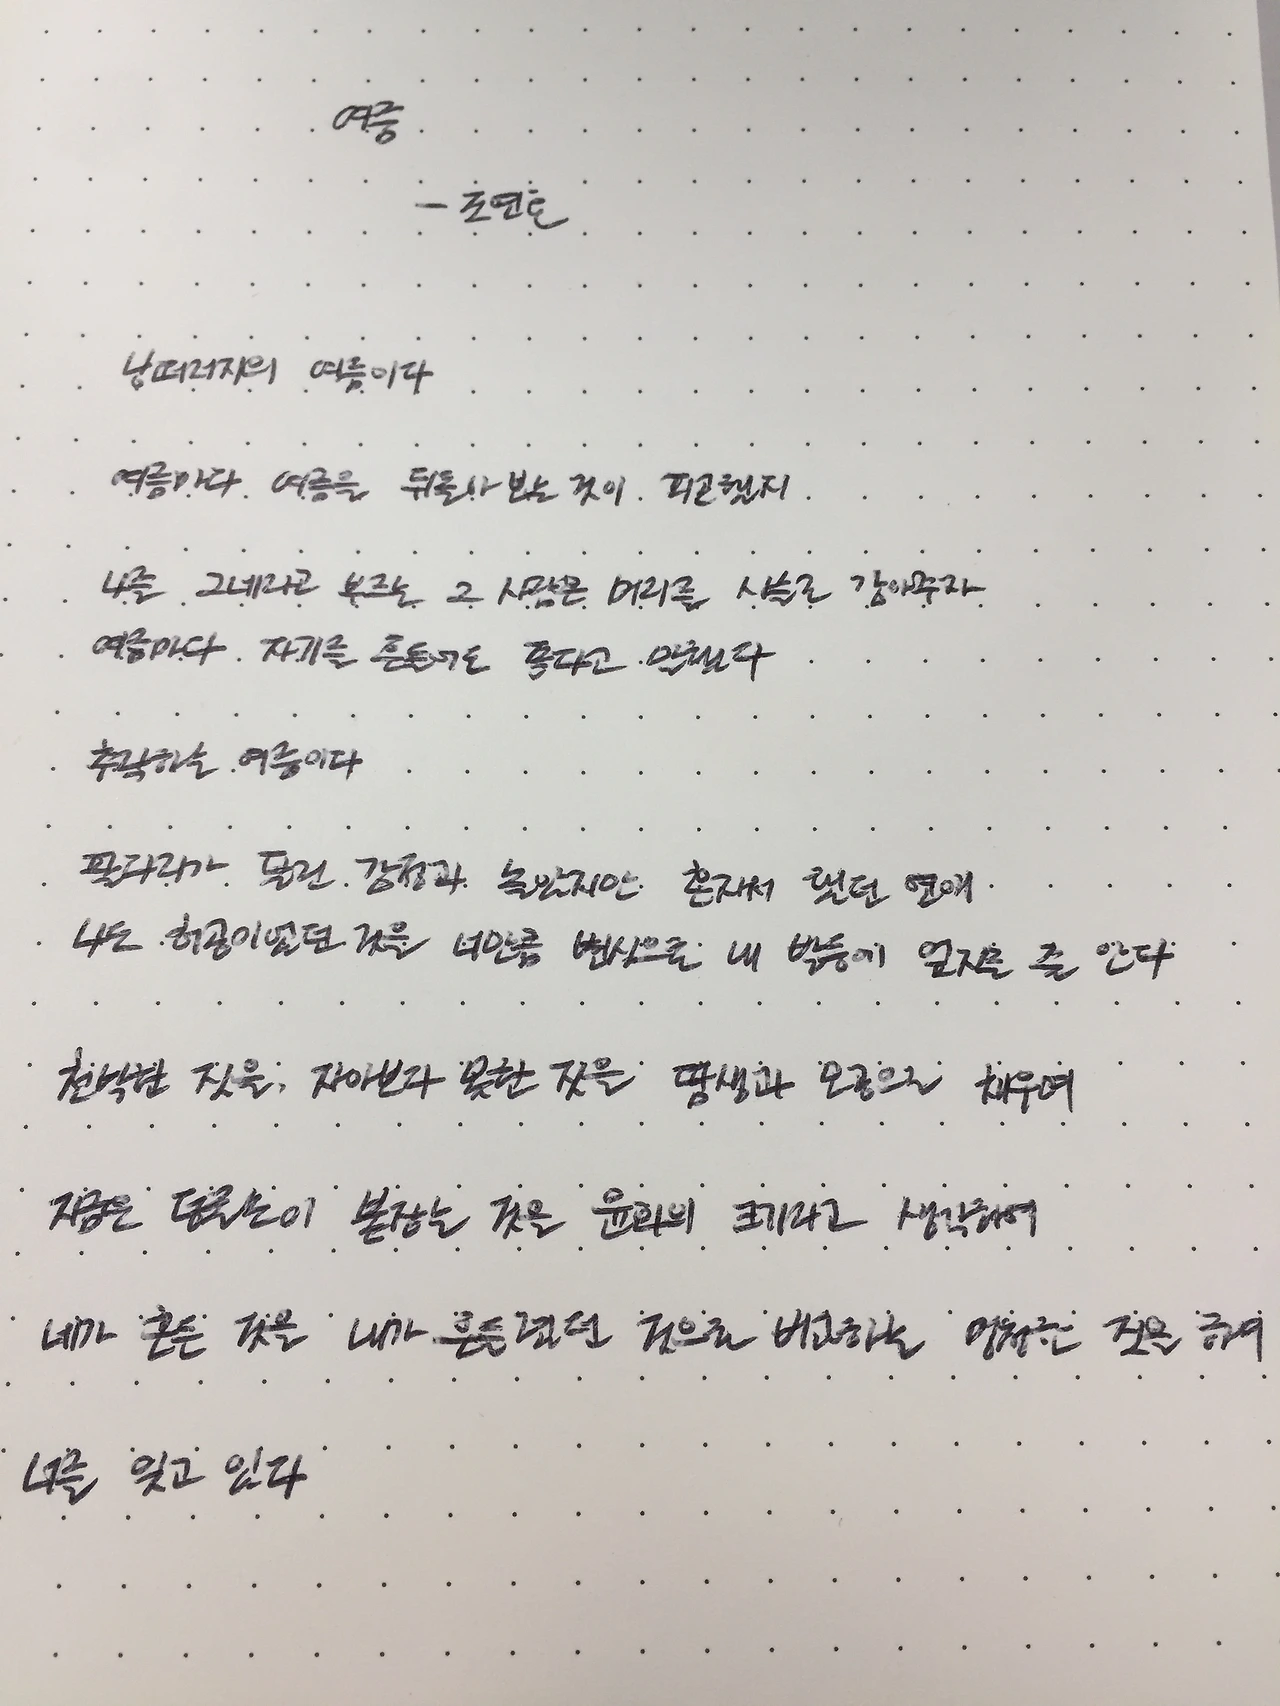 여름
- 조연호
낭떠러지의 여름이다
여름마다 여름을 뒤돌아보는 것이 피곤했지
나를 그네라고 부르는 그 사람은 머리를 사슬로 감아주자
여름마다 자기를 흔들어도 좋다고 말했다
추락하는 여름이다
팔다리가 달린 감정과 놀았지만 혼자서 했던 연애
나도 허공이었던 것을 너만큼 변심으로 내 박동에 얹지를 줄 안다
천박한 짓을, 자아보다 못한 짓을 땀샘과 모공으로 채우며
지금은 덩굴손이 붙잡는 것을 윤과의 크기라고 생각하며
네가 흔든 것을 내가 흔들렸던 것으로 비교하는 멍청한 짓을 하며
너를 잊고 있다